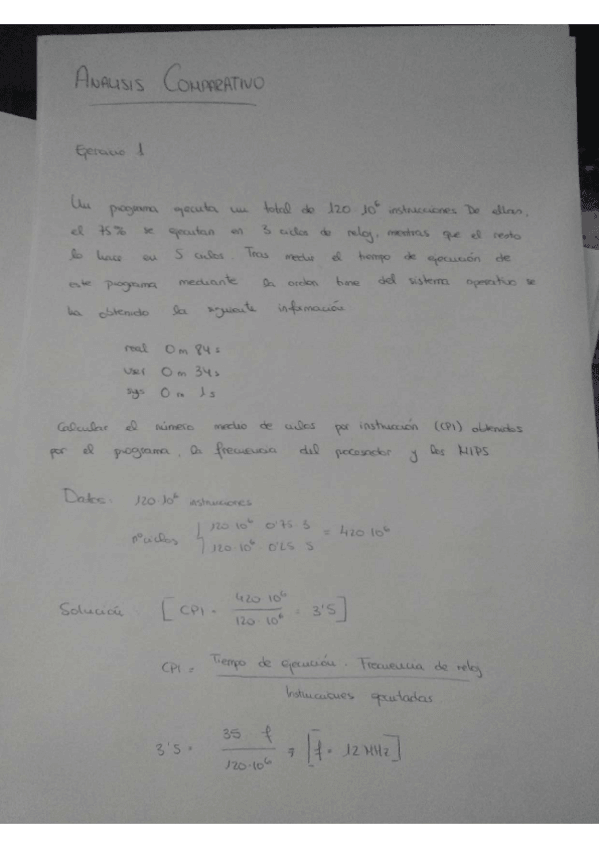 ANALISIS COMPARATIVO
Ejercicio 1
Un programa ejecuta un total de 120·10⁶ instrucciones. De ellas,
el 75% se ejecutan en 3 ciclos de reloj, mientras que el resto
lo hace en 5 ciclos. Tras medir el tiempo de ejecución de
este programa mediante la orden time del sistema operativo se
ha obtenido la siguiente información
real 0m 84s
user 0m 34s
sys 0m 1s
Calcular el número medio de ciclos por instrucción (CPI) obtenidos
por el programa, la frecuencia del procesador y los MIPS.
Datos: 120·10⁶ instrucciones
nº ciclos { 120·10⁶ · 0'75 · 3 = 420·10⁶
120·10⁶ · 0'25 · 5
Solución: [CPI = 420·10⁶ / 120·10⁶ = 3'5]
CPI = Tiempo de ejecución · Frecuencia de reloj
Instrucciones ejecutadas
3'5 = 35 · f / 120·10⁶ ; [f = 12 MHz]